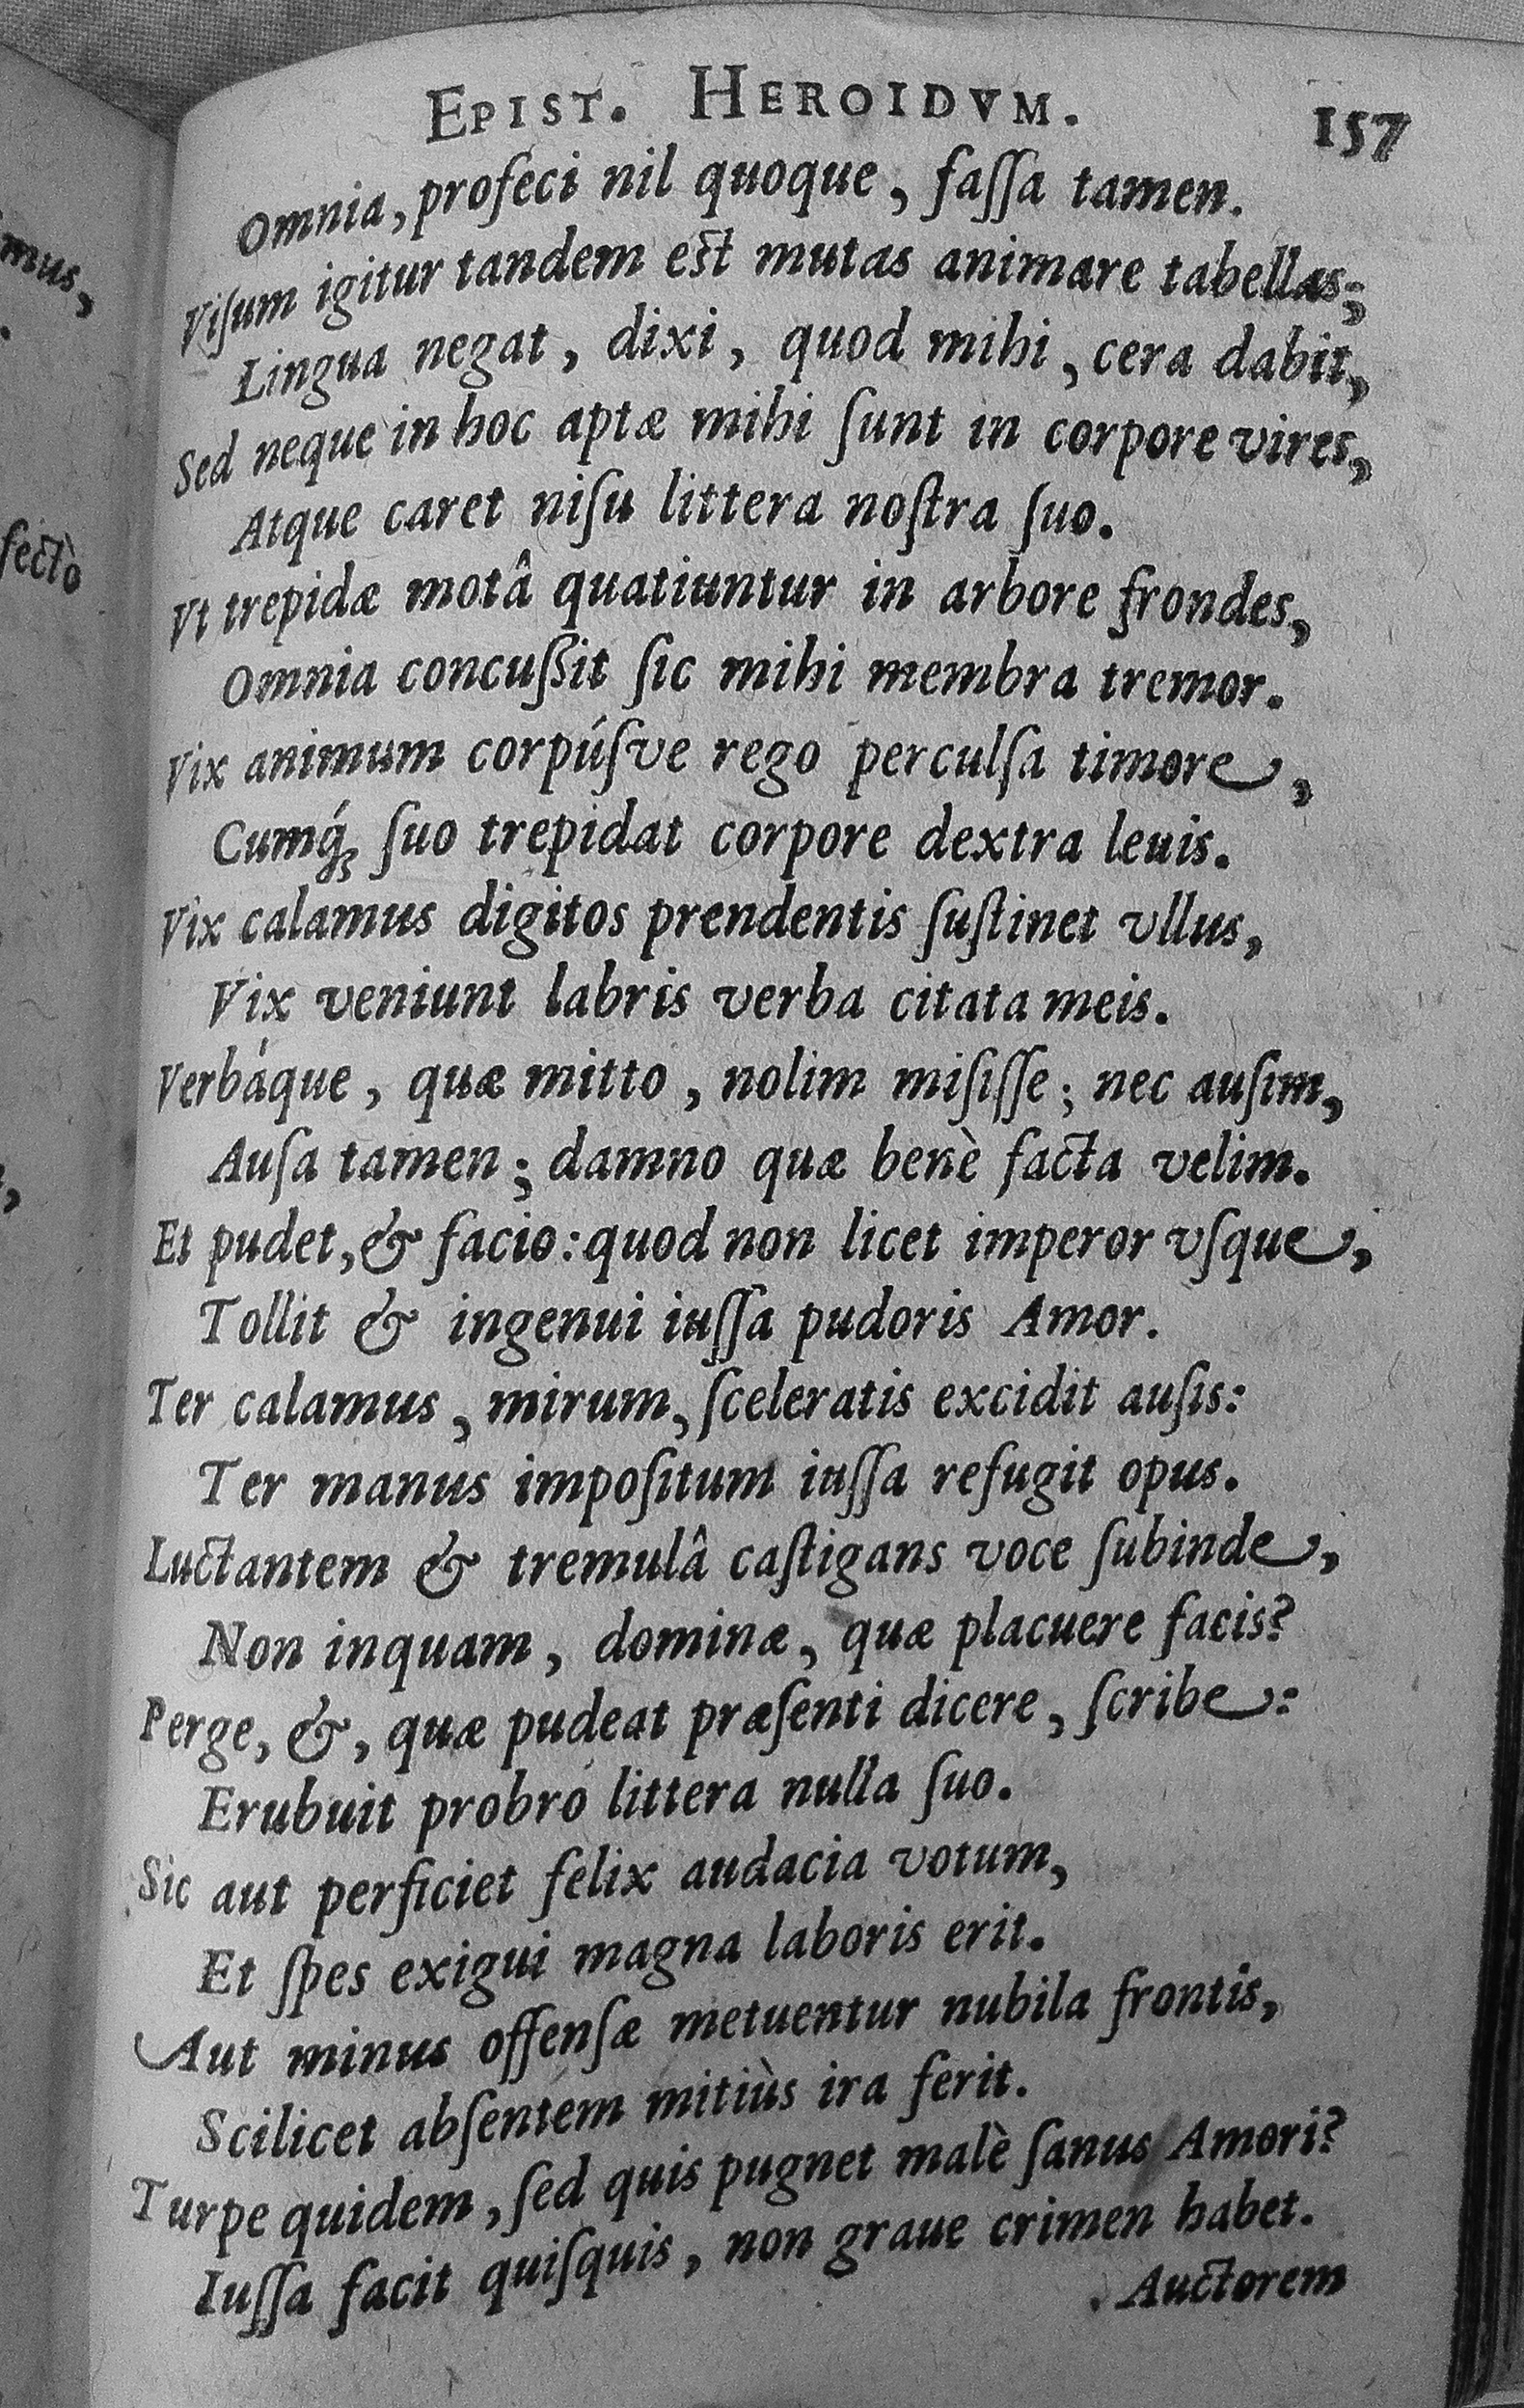 mus,
fectò
EPIST. HEROIDVM. 157
Omnia, profeci nil quoque, faſſa tamen.
Viſum igitur tandem est mutas animare tabellas;
Lingua negat, dixi, quod mihi, cera dabit,
Sed neque in hoc aptæ mihi ſunt in corpore vires,
Atque caret niſu littera noſtra ſuo.
Vt trepidæ motâ quatiuntur in arbore frondes,
Omnia concuſſit ſic mihi membra tremor.
Vix animum corpúſve rego perculſa timore,
Cumq́ꝫ ſuo trepidat corpore dextra leuis.
Vix calamus digitos prendentis ſuſtinet vllus,
Vix veniunt labris verba citata meis.
Verbáque, quæ mitto, nolim miſiſſe; nec auſim,
Auſa tamen; damno quæ benè facta velim.
Et pudet, & facio: quod non licet imperor vſque,
Tollit & ingenui iuſſa pudoris Amor.
Ter calamus, mirum, ſceleratis excidit auſis:
Ter manus impoſitum iuſſa refugit opus.
Luctantem & tremulâ caſtigans voce ſubinde,
Non inquam, dominæ, quæ placuere facis?
Perge, &, quæ pudeat præſenti dicere, ſcribe:
Erubuit probro littera nulla ſuo.
Sic aut perficiet felix audacia votum,
Et ſpes exigui magna laboris erit.
Aut minus offenſæ metuentur nubila frontis,
Scilicet abſentem mitiùs ira ferit.
Turpe quidem, ſed quis pugnet malè ſanus Amori?
Iuſſa facit quiſquis, non graue crimen habet.
Auctorem